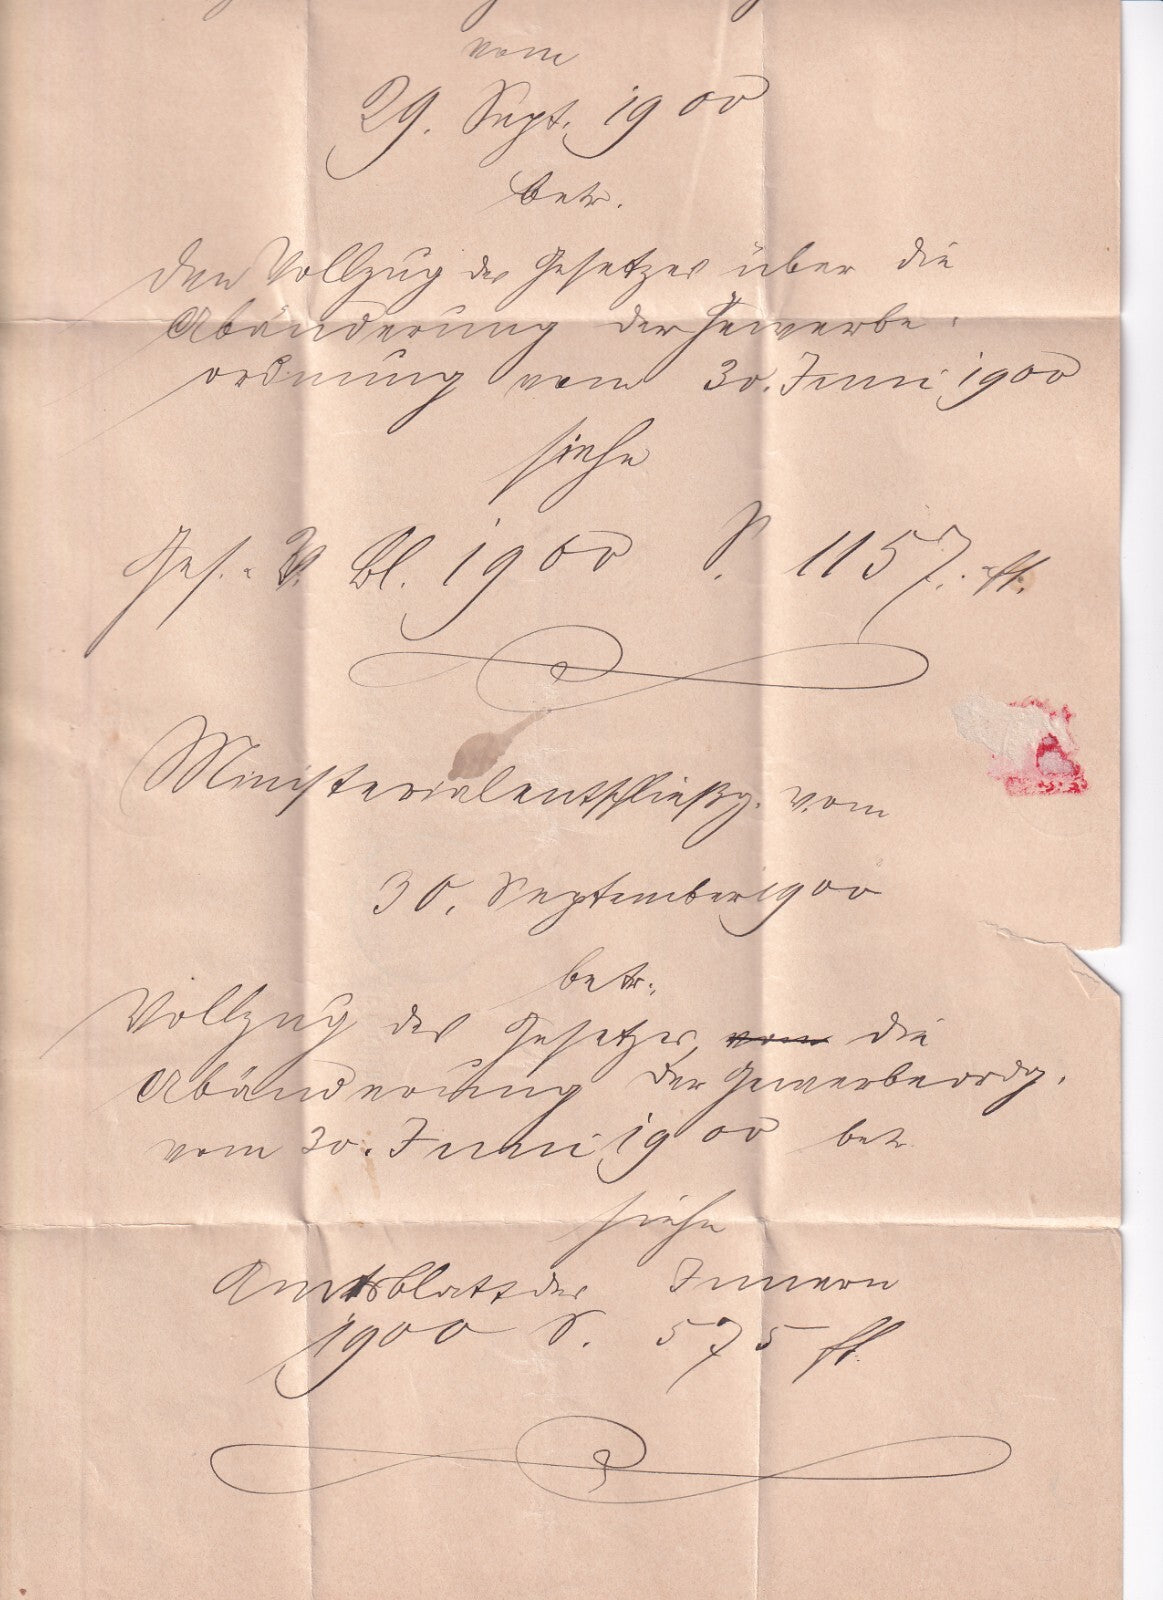 vom
29. Sept. 1900
betr.
den Vollzug des Gesetzes über die
Abänderung der Gewerbe-
ordnung vom 30. Juni 1900
siehe
Ges.- V. Bl. 1900 S. 1157. ff.
Ministerialentschließg. vom
30. September 1900
betr.
Vollzug des Gesetzes, vom die
Abänderung der Gewerbeordg.
vom 30. Juni 1900 betr
siehe
Amtsblatt des Innern
1900 S. 575 ff.